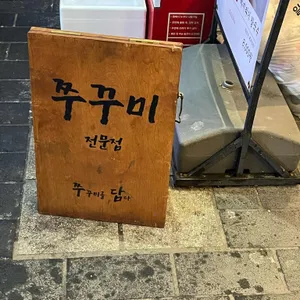 쭈꾸미
전문점
쭈꾸미를 담다